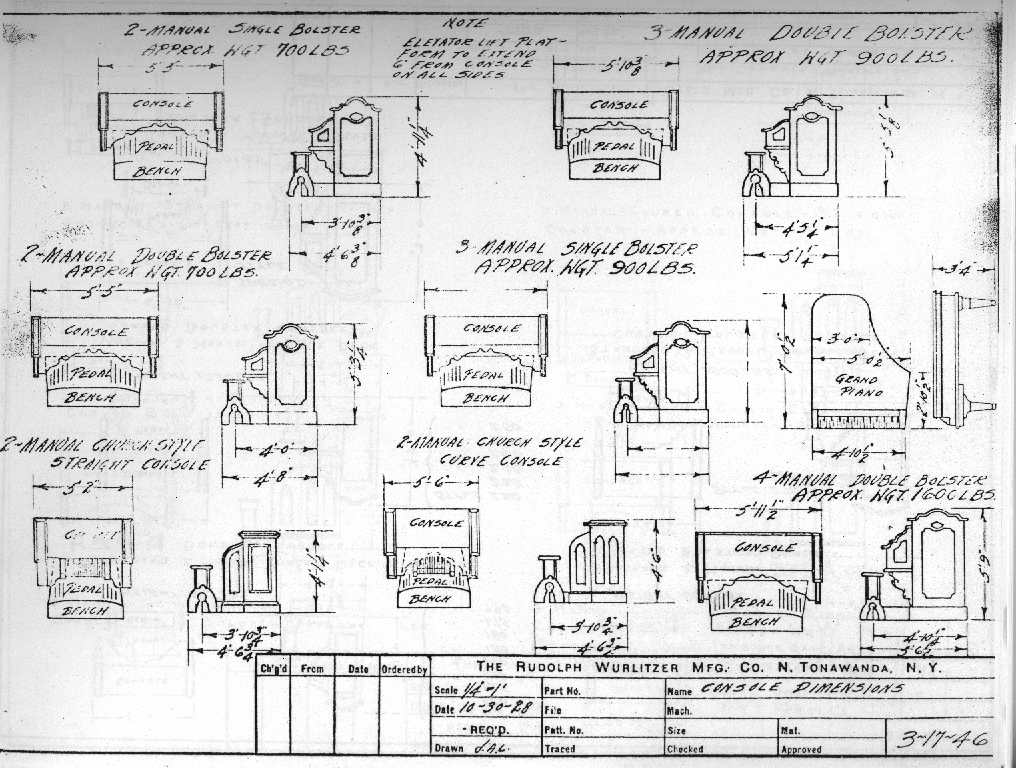 2-MANUAL SINGLE BOLSTER
APPROX WGT 700 LBS
5'5"
CONSOLE
PEDAL
BENCH
3'-10 3/8"
4'6 3/8"
NOTE
ELEVATOR LIFT PLAT-
FORM TO EXTEND
6" FROM CONSOLE
ON ALL SIDES
3-MANUAL DOUBLE BOLSTER
APPROX WGT 900 LBS.
5'10 3/8"
CONSOLE
PEDAL
BENCH
5'-5 1/8"
4'5 1/4"
5'1 1/4"
2-MANUAL DOUBLE BOLSTER
APPROX WGT. 700 LBS.
5'5"
CONSOLE
PEDAL
BENCH
4'-0"
4'8"
3-MANUAL SINGLE BOLSTER
APPROX. WGT. 900 LBS.
CONSOLE
PEDAL
BENCH
3'4"
7'0 1/2"
3'-0"
5'0 1/2"
GRAND
PIANO
2'10 1/2"
4'-10 1/2"
2-MANUAL CHURCH STYLE
STRAIGHT CONSOLE
5'2"
CONSOLE
PEDAL
BENCH
4'-1 1/4"
3'-10 3/4"
4'-6 3/4"
2-MANUAL CHURCH STYLE
CURVE CONSOLE
5'-6"
CONSOLE
PEDAL
BENCH
3'-10 3/4"
4'-6 3/4"
4-MANUAL DOUBLE BOLSTER
APPROX. WGT. 1600 LBS.
5'11 1/2"
CONSOLE
PEDAL
BENCH
5'9"
4'-10 1/2"
5'6 1/2"
Ch'g'd From Date Ordered by
THE RUDOLPH WURLITZER MFG. CO. N. TONAWANDA, N. Y.
Scale 1/4"=1' Part No. Name CONSOLE DIMENSIONS
Date 10-30-28 File Mach.
-REQ'D. Patt. No. Size Mat.
Drawn J.A.C. Traced Checked Approved
3-17-46